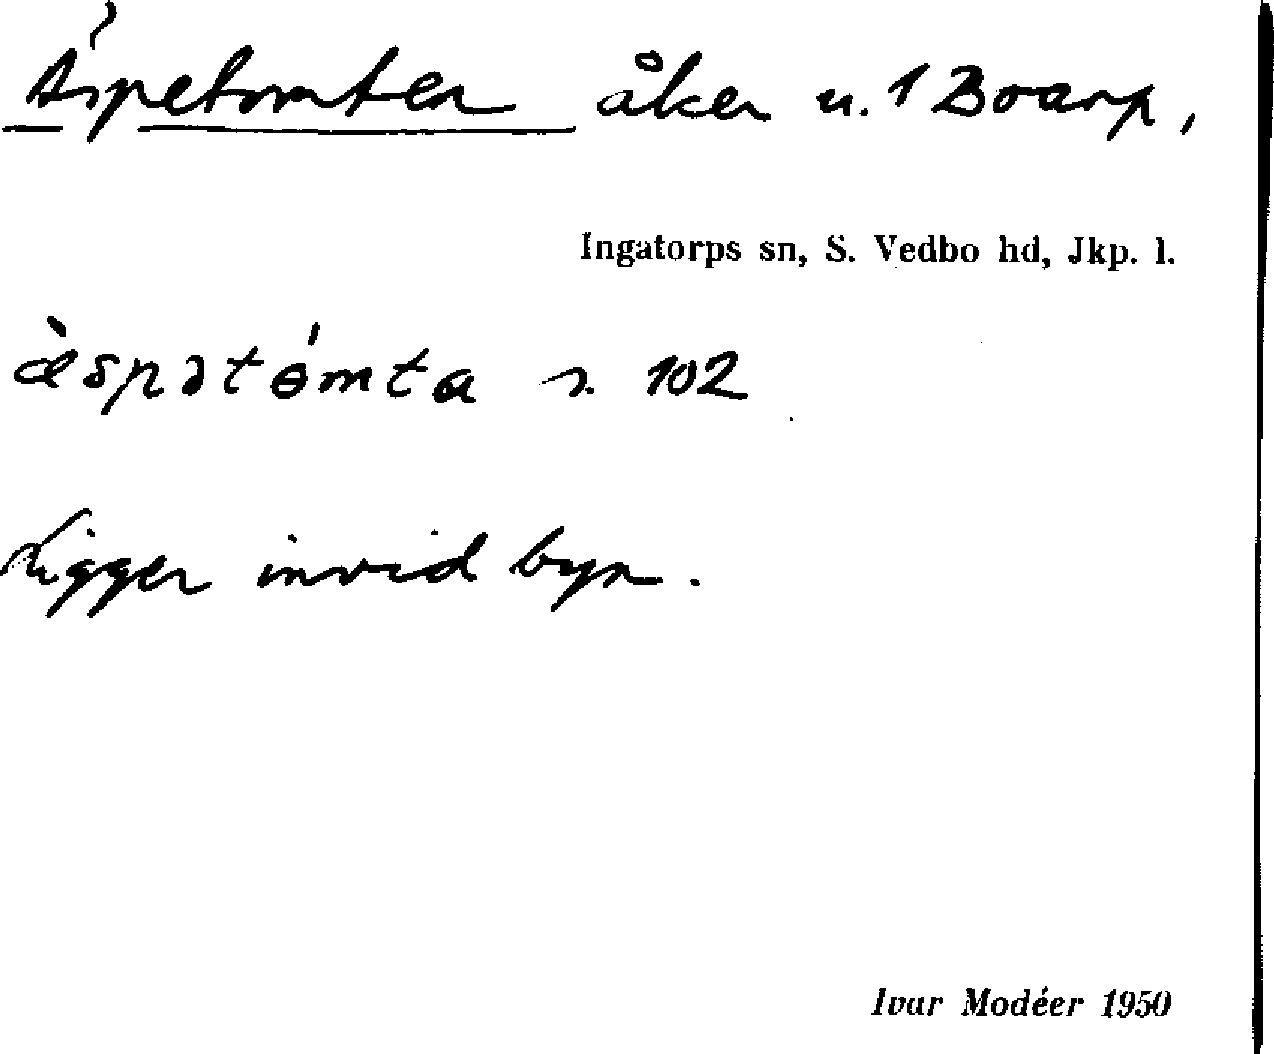 Äspetomten åker u. 1 Boarp,
Ingatorps sn, S. Vedbo hd, Jkp. l.
æ̀spətɵ́mta s. 102
Ligger invid byn.
Ivar Modéer 1950